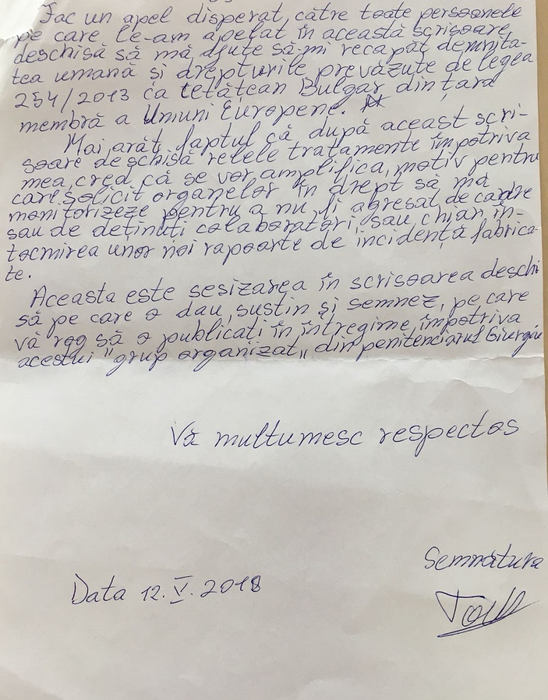 Fac un apel disperat, către toate persoanele
pe care le-am apelat în această scrisoare
deschisă să mă ajute să-mi recapăt demnita-
tea umană și drepturile prevăzute de legea
254/2013 ca tetățean Bulgar din țară
membră a Uniuni Europene.
Mai arăt faptul că după aceast scri-
soare deschisă relele tratamente împotriva
mea, cred că se vor amplifica, motiv pentru
care solicit organelor în drept să mă
monitorizeze pentru a nu fi agresat de cadre
sau de deținuți colaboratori, sau chiar în-
tocmirea unor noi rapoarte de incidență fabrica-
te.
Aceasta este sesizarea în scrisoarea deschi
să pe care o dau, susțin și semnez, pe care
vă rog să o publicați în întregime, împotriva
acestui "grup organizat" din penitenciarul Giurgiu
Vă multumesc respectos
Semnătura
Data 12.V.2018